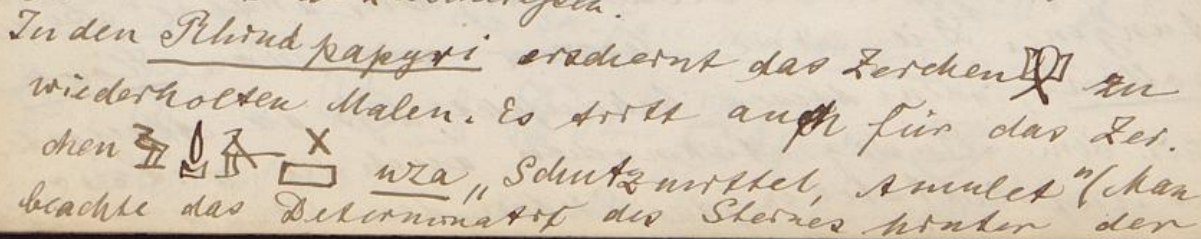 In den Rhind papyri erscheint das Zeichen zu
wiederholten Malen. Es tritt auch für das Zei-
chen uza „Schutzmittel, Amulet" (Man
beachte das Determinativ des Steines hinter der